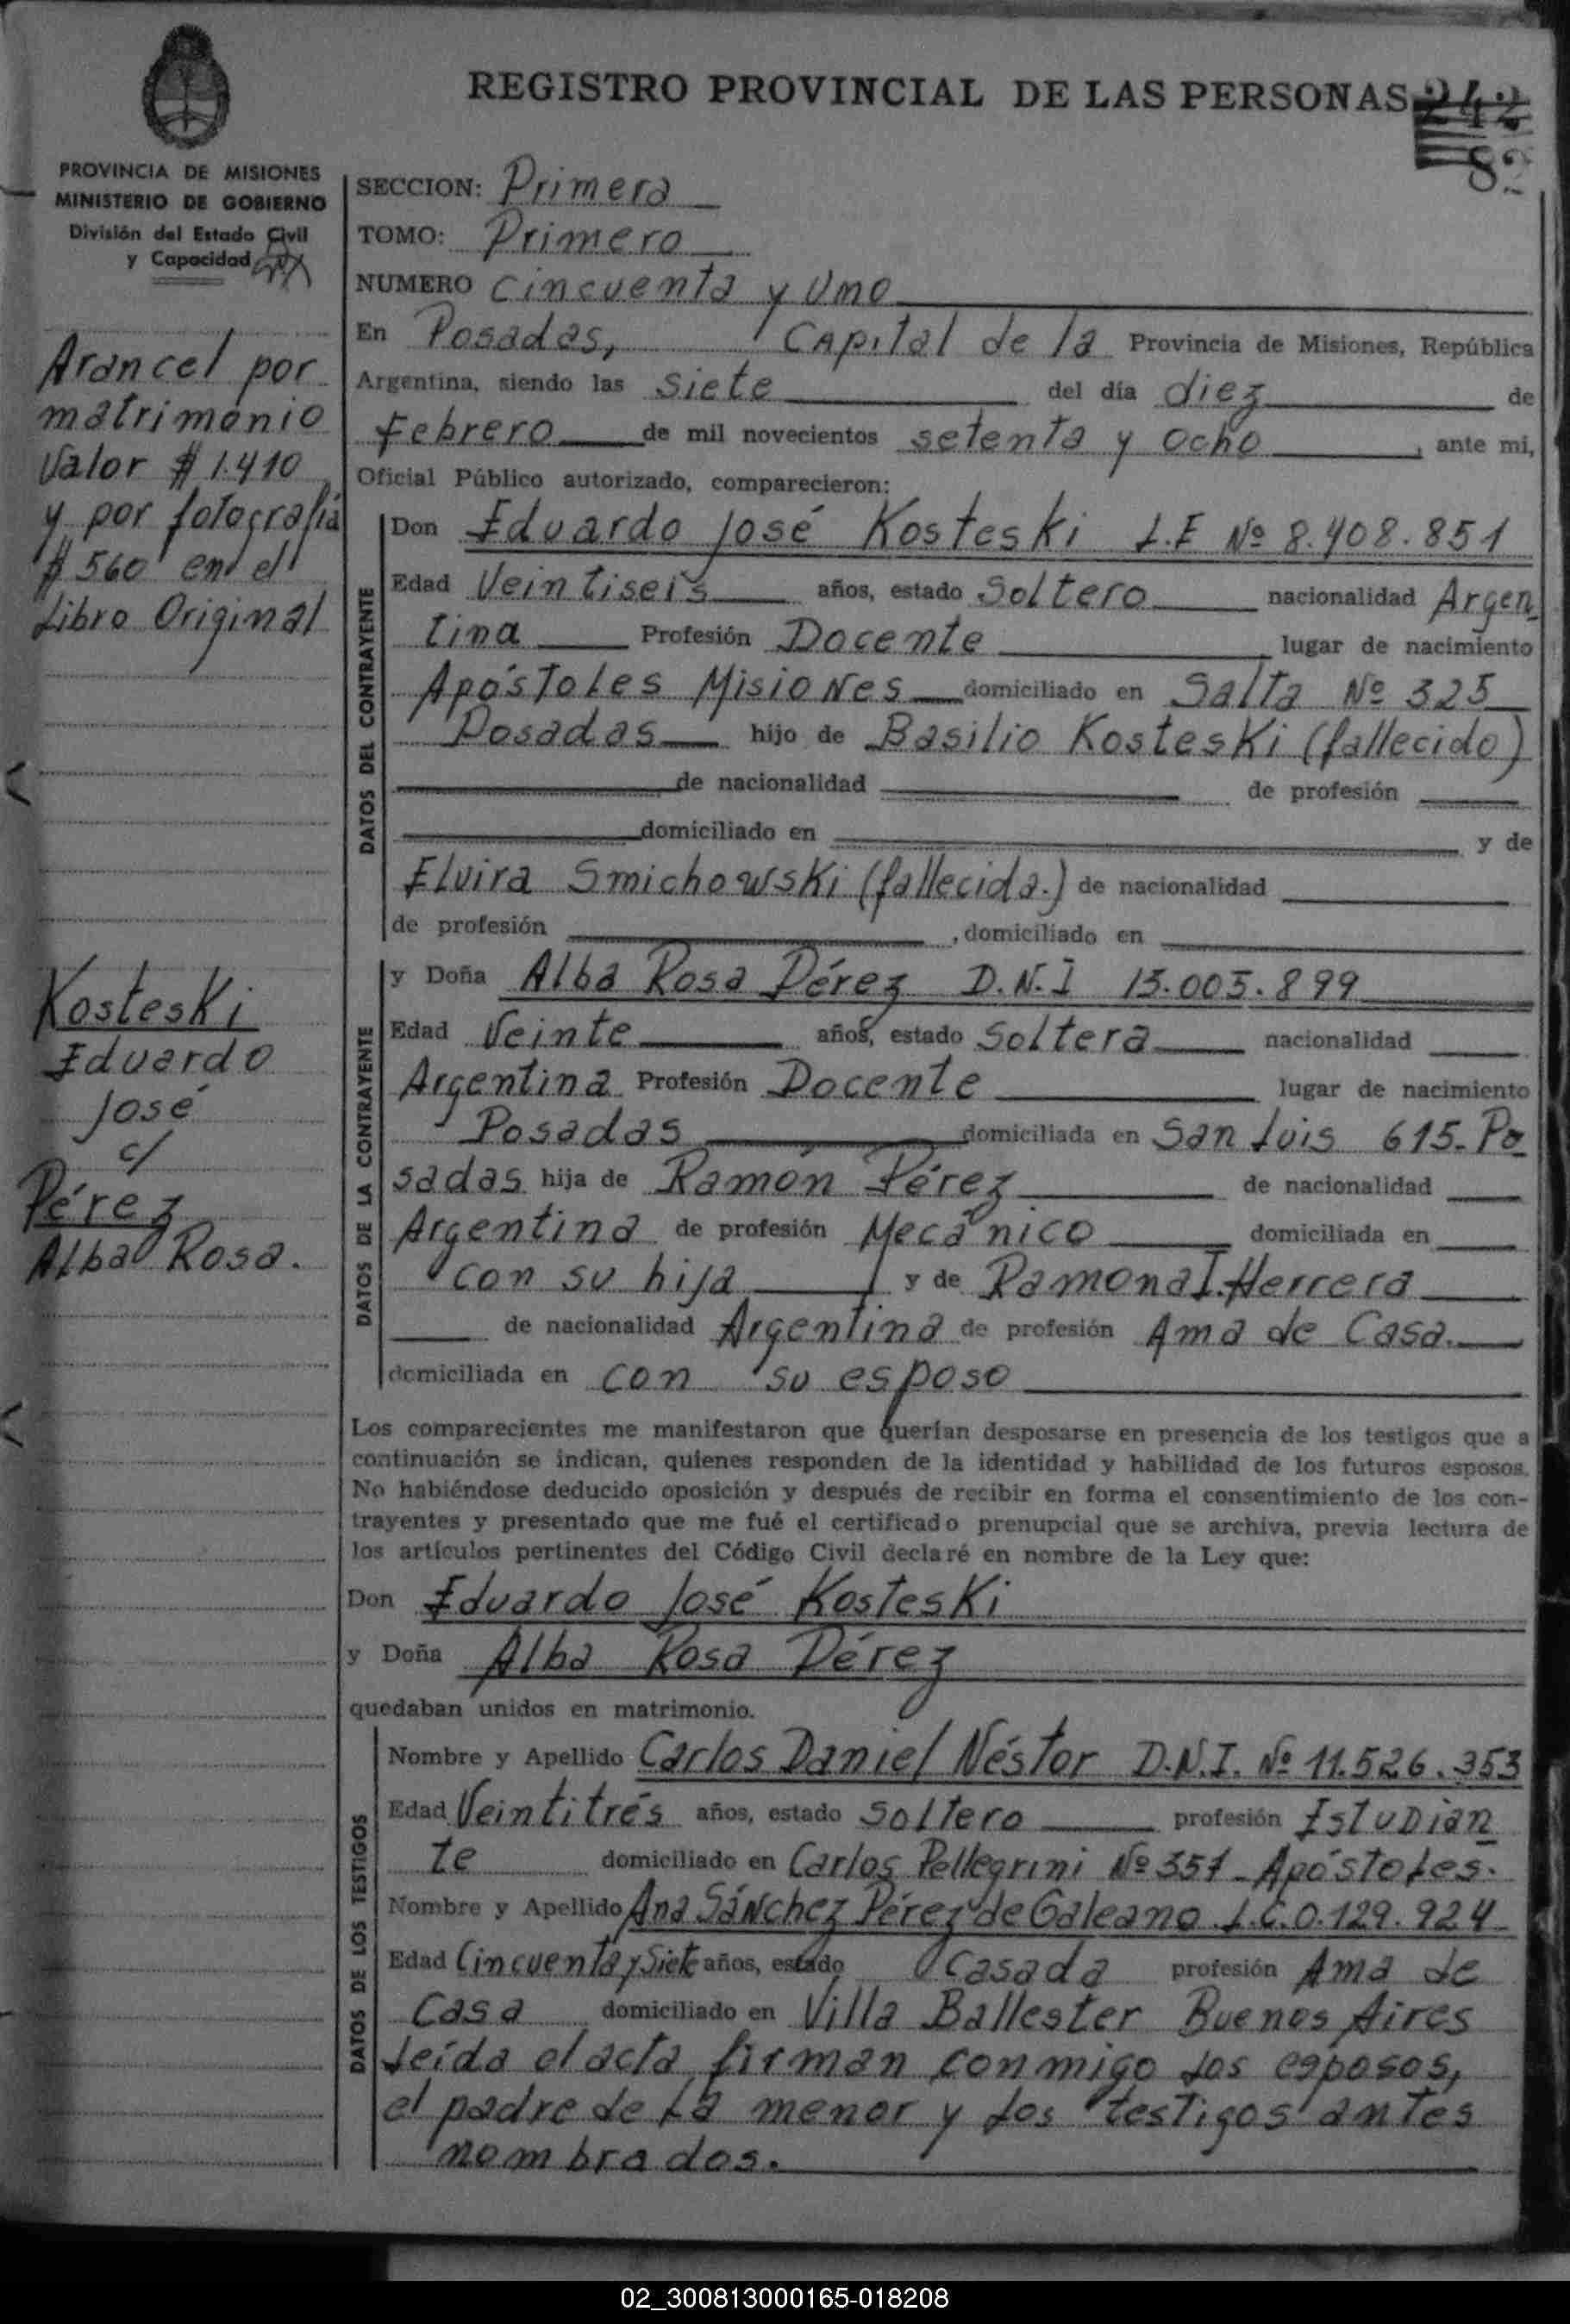 REGISTRO PROVINCIAL DE LAS PERSONAS 242
82
PROVINCIA DE MISIONES
MINISTERIO DE GOBIERNO
División del Estado Civil
y Capacidad
Arancel por
matrimonio
Valor $ 1.410
y por fotografía
$ 560 en el
Libro Original
Kosteski
Eduardo
José
c/
Pérez
Alba Rosa.
SECCION: Primera
TOMO: Primero
NUMERO Cincuenta y Uno
En Posadas, Capital de la Provincia de Misiones, República
Argentina, siendo las siete del día diez de
Febrero de mil novecientos setenta y ocho, ante mi,
Oficial Público autorizado, comparecieron:
DATOS DEL CONTRAYENTE
Don Eduardo José Kosteski L.E Nº 8.408.851
Edad Veintiseis años, estado Soltero nacionalidad Argen
tina Profesión Docente lugar de nacimiento
Apóstoles Misiones domiciliado en Salta Nº 325
Posadas hijo de Basilio Kosteski (fallecido)
de nacionalidad de profesión
domiciliado en y de
Elvira Smichowski (fallecida.) de nacionalidad
de profesión , domiciliado en
DATOS DE LA CONTRAYENTE
y Doña Alba Rosa Pérez D.N.I 13.005.899
Edad Veinte años, estado Soltera nacionalidad
Argentina Profesión Docente lugar de nacimiento
Posadas domiciliada en San Luis 615-Po
sadas hija de Ramón Pérez de nacionalidad
Argentina de profesión Mecánico domiciliada en
con su hija y de Ramona I. Herrera
de nacionalidad Argentina de profesión Ama de Casa.
domiciliada en con su esposo
Los comparecientes me manifestaron que querían desposarse en presencia de los testigos que a
continuación se indican, quienes responden de la identidad y habilidad de los futuros esposos.
No habiéndose deducido oposición y después de recibir en forma el consentimiento de los con-
trayentes y presentado que me fué el certificado prenupcial que se archiva, previa lectura de
los artículos pertinentes del Código Civil declaré en nombre de la Ley que:
Don Eduardo José Kosteski
y Doña Alba Rosa Pérez
quedaban unidos en matrimonio.
DATOS DE LOS TESTIGOS
Nombre y Apellido Carlos Daniel Néstor D.N.I. Nº 11.526.353
Edad Veintitrés años, estado soltero profesión Estudian
te domiciliado en Carlos Pellegrini Nº 351 - Apóstoles.
Nombre y Apellido Ana Sánchez Pérez de Galeano L.C.0.129.924
Edad Cincuenta y Siete años, estado Casada profesión Ama de
Casa domiciliado en Villa Ballester Buenos Aires
Leída el acta firman conmigo los esposos,
el padre de la menor y los testigos antes
nombrados.
02_300813000165-018208